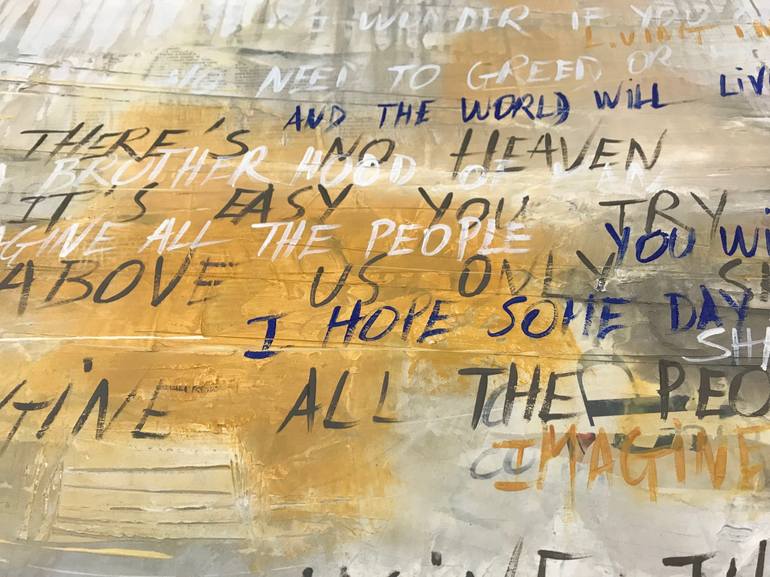 WONDER IF YOU
LIVING IN
NO NEED TO GREED OR
AND THE WORLD WILL LIV
THERE'S NO HEAVEN
A BROTHER HOOD OF MAN
IT'S EASY YOU TRY
AGINE ALL THE PEOPLE
YOU WI
ABOVE US ONLY SK
I HOPE SOME DAY
SH
GINE ALL THE PEO
IMAGINE